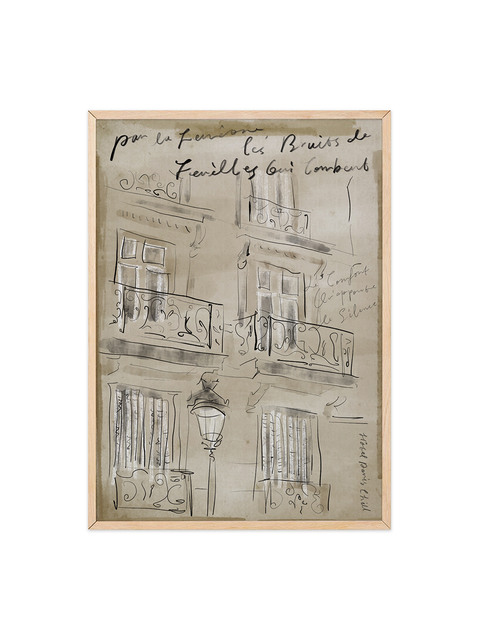 par la Fenêtre
les Bruits de
Feuilles Qui Tombent
Le Confort
Qu'apporte
le Silence
Hôtel Paris Chill